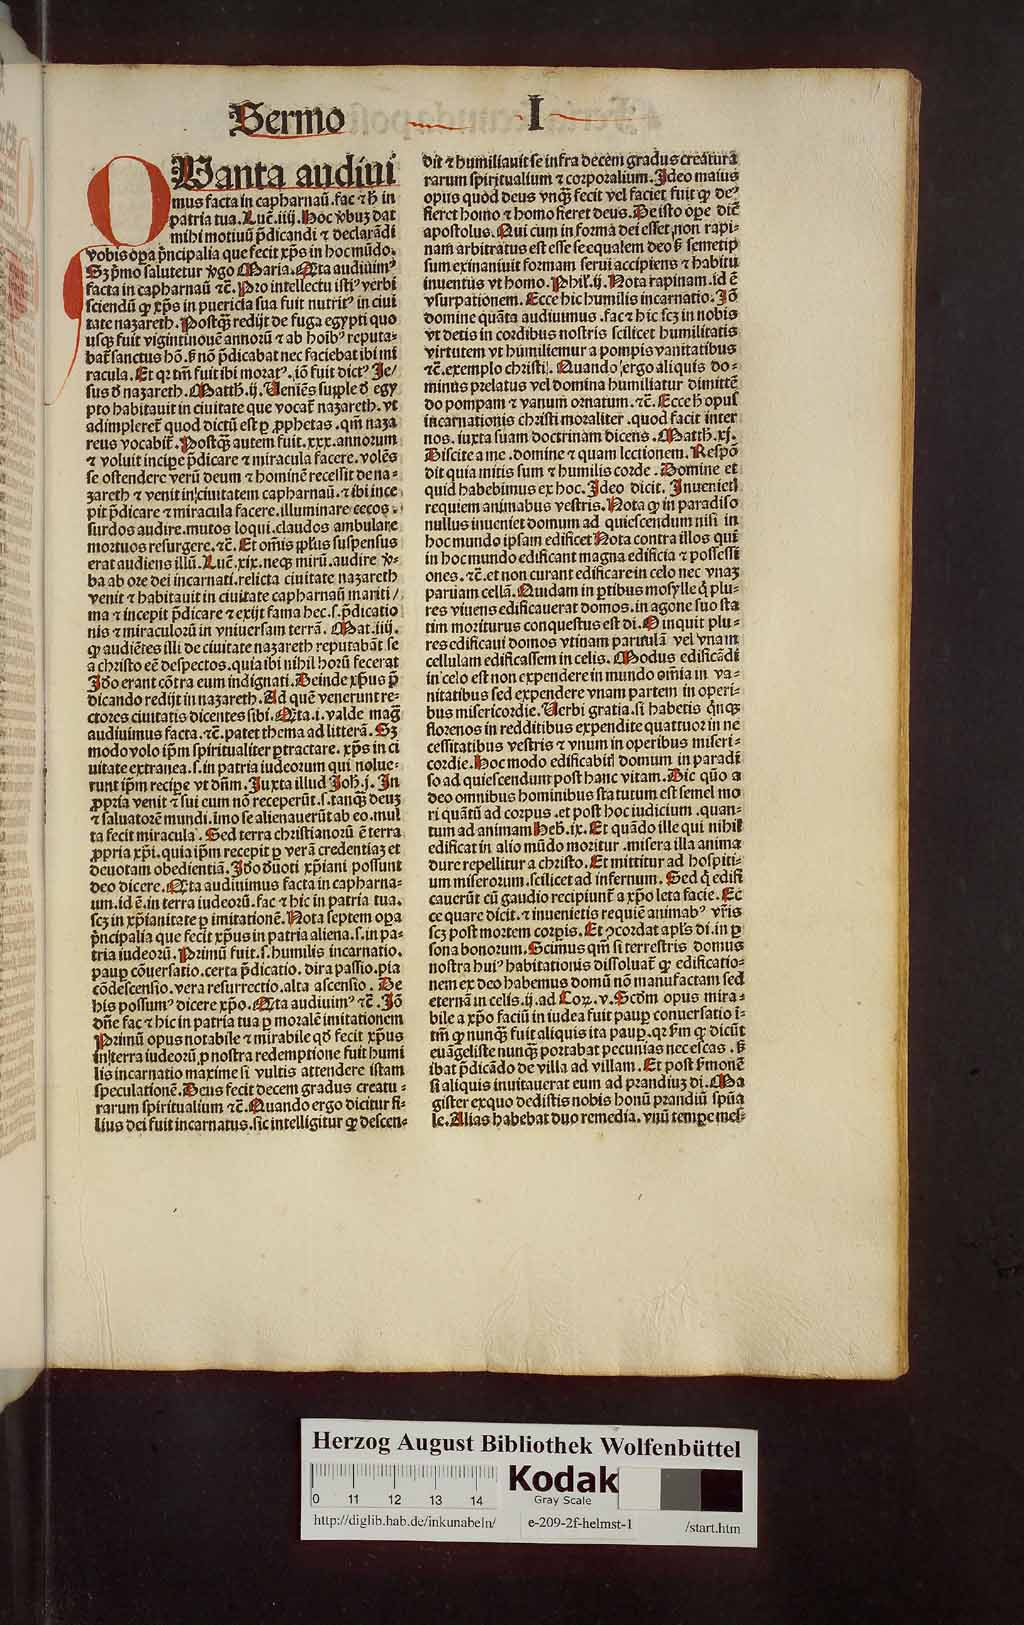 Sermo I
QVanta audiui
mus facta in capharnaū .fac ⁊ h̄ in
patria tua. Luc̄. iiij. Hoc v̓bis dat
mihi motiuū p̄dicandi ⁊ declarādi
vobis oꝑa pͥncipalia que fecit xp̄s in hoc mūdo.
Sꝫ pͥmo salutetur v̓go Maria. Q̄ta audiuimꝰ
facta in capharnaū ⁊c̄. Pro intellectu istiꝰ verbi
sciendū ꝙ xp̄s in puericia sua fuit nutritꝰ in ciui
tate nazareth. Postqꝫ redijt de fuga egypti quo
usqꝫ fuit vigintinouē annorū ⁊ ab hoībꝰ reputa-
bat᷑ sanctus hō. sꝫ nō p̄dicabat nec faciebat ibi mi
racula. Et qꝛ tm̄ fuit ibi moratꝰ. iō fuit dictꝰ Je/
sus d̓ nazareth. Matth̄. ij. Ueniēs suꝑple d̓ egy
pto habitauit in ciuitate que vocat᷑ nazareth. vt
adimpleret᷑ quod dictū est ꝑ ꝓphetas .qm̄ naza
reus vocabit᷑. Postqꝫ autem fuit .xxx. annorum
⁊ voluit inciꝑe p̄dicare ⁊ miracula facere. volēs
se ostendere verū deum ⁊ hominē recessit de na-
zareth ⁊ venit in ciuitatem capharnaū. ⁊ ibi ince
pit p̄dicare ⁊ miracula facere. illuminare cecos.
surdos audire. mutos loqui. claudos ambulare
mortuos resurgere. ⁊c̄. Et om̄is ppl̓us suspensus
erat audiens illū. Luc̄. xix. neqꝫ mirū. audire v̓-
ba ab ore dei incarnati. relicta ciuitate nazareth
venit ⁊ habitauit in ciuitate capharnaū mariti/
ma ⁊ incepit p̄dicare ⁊ exijt fama hec .s. p̄dicatio
nis ⁊ miraculorū in vniuersam terrā. Mat. iiij.
ꝙ audiētes illi de ciuitate nazareth reputabāt se
a christo eē despectos. quia ibi nihil horū fecerat
Jdo erant cōtra eum indignati. Deinde xp̄us p̄
dicando redijt in nazareth. Ad quē venerunt re-
ctores ciuitatis dicentes sibi. Q̄ta .i. valde maḡ
audiuimus facta. ⁊c̄. patet thema ad litterā. Sꝫ
modo volo ip̄m spiritualiter ꝑtractare. xp̄s in ci
uitate extranea .s. in patria iudeorum qui nolue-
runt ip̄m reciꝑe vt dn̄m. Juxta illud Joh̄. j. In
ꝓpria venit ⁊ sui eum nō receperūt .s. tanqꝫ deuꝫ
⁊ saluatorē mundi. imo se alienauerūt ab eo. mul
ta fecit miracula. Sed terra christianorū ē terra
ꝓpria xp̄i. quia ip̄m recepit ꝑ verā credentiaꝫ et
deuotam obedientiā. Jdo d̓uoti xp̄iani possunt
deo dicere. Q̄ta audiuimus facta in capharna-
um. id ē. in terra iudeorū. fac ⁊ hic in patria tua.
scꝫ in xp̄ianitate ꝑ imitationē. Nota septem oꝑa
pͥncipalia que fecit xp̄us in patria aliena .s. in pa-
tria iudeorū. Primū fuit .s. humilis incarnatio.
pauꝑ cōuersatio. certa p̄dicatio. dira passio. pia
cōdescensio. vera resurrectio. alta ascensio. De
his possumꝰ dicere xp̄o. Q̄ta audiuimꝰ ⁊c̄. Jō
dn̄e fac ⁊ hic in patria tua ꝑ moralē imitationem
Primū opus notabile ⁊ mirabile qd̓ fecit xp̄us
in terra iudeorū ꝓ nostra redemptione fuit humi
lis incarnatio maxime si vultis attendere istam
speculationē. Deus fecit decem gradus creatu-
rarum spiritualium ⁊c̄. Quando ergo dicitur fi-
lius dei fuit incarnatus. sic intelligitur ꝙ descen-
dit ⁊ humiliauit se infra decem gradus creatura
rarum spiritualium ⁊ corporalium. Jdeo maius
opus quod deus vnqꝫ fecit vel faciet fuit ꝙ deꝰ
fieret homo ⁊ homo fieret deus. De isto oꝑe dic̄
apostolus. Qui cum in forma dei esset non rapi-
nam arbitratus est esse se equalem deo sꝫ semetip
sum exinaniuit formam serui accipiens ⁊ habitu
inuentus vt homo. Phil̓. ij. Nota rapinam. id ē
vsurpationem. Ecce hic humilis incarnatio. Jō
domine quāta audiuimus .fac ⁊ hic scꝫ in nobis
vt detis in cordibus nostris scilicet humilitatis
virtutem vt humiliemur a pompis vanitatibus
⁊c̄. exemplo christi. Quando ergo aliquis do-
minus prelatus vel domina humiliatur dimittē
do pompam ⁊ vanum ornatum. ⁊c̄. Ecce h̄ opus
incarnationis christi moraliter .quod facit inter
nos. iuxta suam doctrinam dicens. Matth̄. xj.
Discite a me. domine ⁊ quam lectionem. Respō
dit quia mitis sum ⁊ humilis corde. Domine et
quid habebimus ex hoc. Jdeo dicit. Inuenietis
requiem animabus vestris. Nota ꝙ in paradiso
nullus inueniet domum ad quiescendum nisi in
hoc mundo ipsam edificet Nota contra illos qui
in hoc mundo edificant magna edificia ⁊ possessi
ones. ⁊c̄. et non curant edificare in celo nec vnaꝫ
paruam cellā. Quidam in ꝑtibus mosylle q̄ plu-
res viuens edificauerat domos. in agone suo sta
tim moriturus conquestus est di. O inquit plu-
res edificaui domos vtinam paruulā vel vnam
cellulam edificassem in celis. Modus edificādi
in celo est non expendere in mundo om̄ia in va-
nitatibus sed expendere vnam partem in operi-
bus misericordie. Verbi gratia. si habetis qͥnqꝫ
florenos in redditibus expendite quattuor in ne
cessitatibus vestris ⁊ vnum in operibus miseri-
cordie. Hoc modo edificabit᷑ domum in paradi
so ad quiescendum post hanc vitam. Dic quō a
deo omnibus hominibus statutum est semel mo
ri quātū ad corpus .et post hoc iudicium .quan-
tum ad animam Heb̄. ix. Et quādo ille qui nihil
edificat in alio mūdo moritur .misera illa anima
dure repellitur a christo. Et mittitur ad hospiti-
um miserorum. scilicet ad infernum. Sed q̄ edifi
cauerūt cū gaudio recipiunt᷑ a xp̄o leta facie. Ec
ce quare dicit. ⁊ inuenietis requiē animabꝰ vr̄is
scꝫ post mortem corꝑis. Et ꝯcordat apl̓s di. in ꝑ
sona bonorum. Scimus qm̄ si terrestris domus
nostra huiꝰ habitationis dissoluat᷑ ꝙ edificatio-
nem ex deo habemus domū nō manufactam sed
eternā in celis. ij. ad Cor. v. Scd̓m opus mira-
bile a xp̄o faciū in iudea fuit pauꝑ conuersatio i-
tm̄ ꝙ nunqꝫ fuit aliquis ita pauꝑ. qꝛ s̓m ꝙ dicūt
euāgeliste nunqꝫ portabat pecunias nec escas. sꝫ
ibat p̄dicādo de villa ad villam. Et post s̓monē
si aliquis inuitauerat eum ad prandiuꝫ di. Ma
gister exquo dedistis nobis bonū prandiū spūa
le. Alias habebat duo remedia. vnū tempe mes-
Herzog August Bibliothek Wolfenbüttel
0 11 12 13 14
Kodak
Gray Scale
http://diglib.hab.de/inkunabeln/ e-209-2f-helmst-1 /start.htm